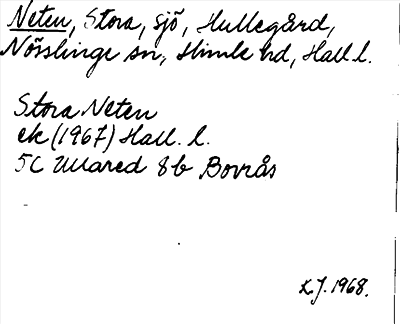 Neten, Stora, sjö, Hullegård,
Nösslinge sn, Himle hd, Hall l.
Stora Neten
ek (1967) Hall. l.
5C Ullared 8b Bovrås
K.J. 1968.